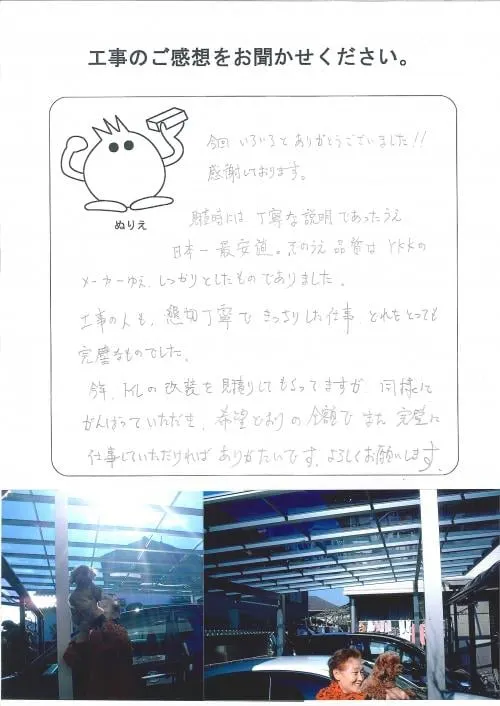 工事のご感想をお聞かせください。
今回 いろいろとありがとうございました!!
感謝しております。
ぬりえ
時には 丁寧な説明であったうえ
日本一 最安値。そのうえ 品質は YKKの
メーカーゆえ、しっかりとしたものでありました。
工事の人も、懇切丁寧で きっちりした仕事、どれをとっても
完璧なものでした。
今年、トイレの改装を見積りしてもらってますが、同様に
がんばっていただき、希望どおりの金額で また 完璧に
仕事していただければ ありがたいです、よろしくお願いします。